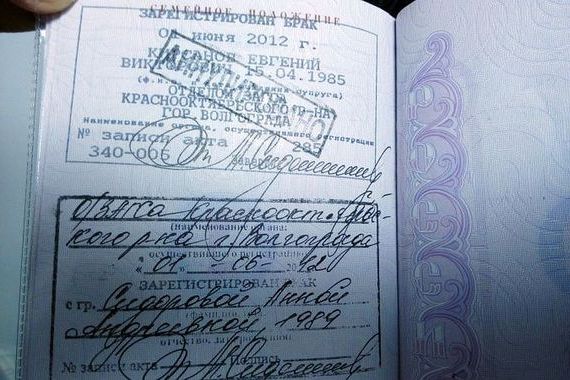 СЕМЕЙНОЕ ПОЛОЖЕНИЕ
ЗАРЕГИСТРИРОВАН БРАК
июня 2012 г.
ЕВГЕНИЙ
15.04.1985
ОТДЕЛОМ
КРАСНООКТЯБРЬСКОГО Р-НА
ГОР. ВОЛГОГРАДА
Наименование органа, осуществившего регистрацию
№ записи акта 285
340-006
О/ЗАГСа Краснооктябрь-
ского р-на г. Волгограда
(наименование органа:
осуществившего регистрацию)
«01» 06 2012
ЗАРЕГИСТРИРОВАН БРАК
с гр. Сидоровой Анной
Андреевной, 1989
отчество, дата рождения)
№ записи акта Подпись